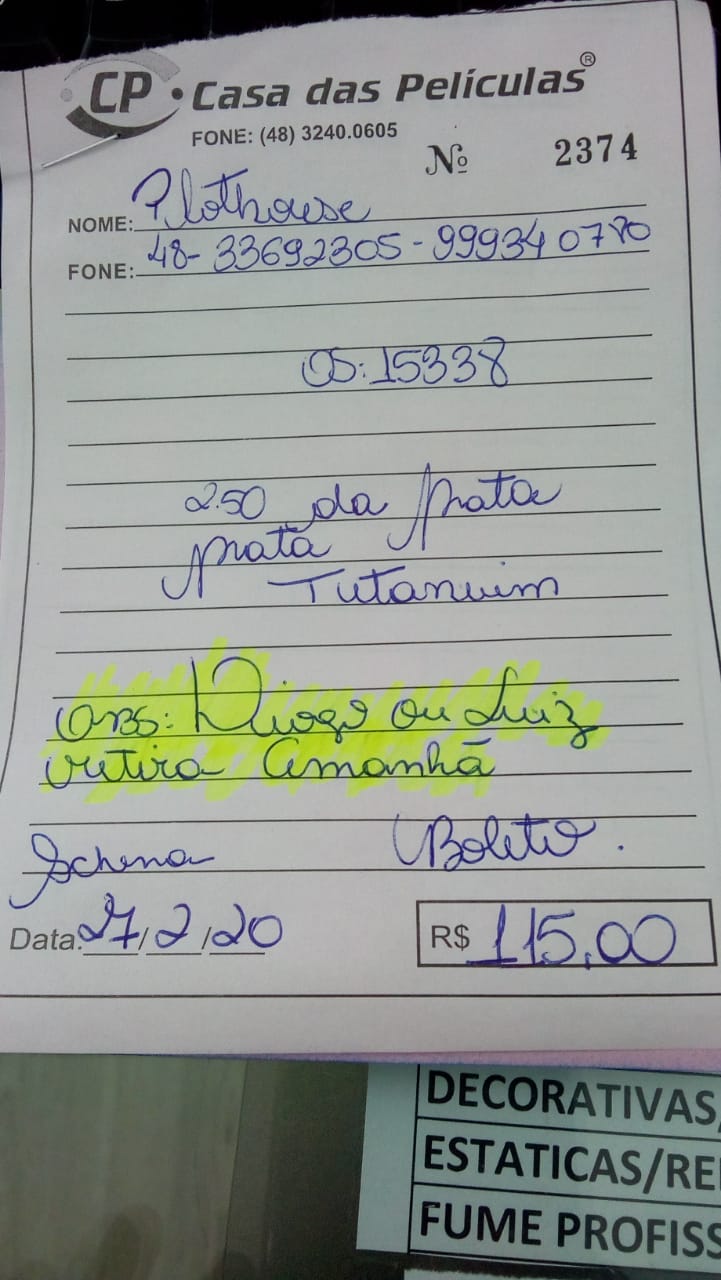 CP • Casa das Películas®
FONE: (48) 3240.0605
Nº 2374
NOME: Plothouse
FONE: 48-33692305-999340770
OS: 15338
2.50 da prata
prata
Tutanuim
OBS: Diogo ou Luiz
retira amanhã
Schena Boleto.
Data: 27/2/20 R$ 115,00
DECORATIVAS/
ESTATICAS/RE
FUME PROFISS